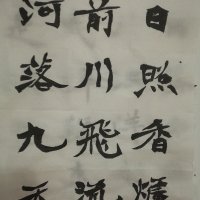 日照香爐
前川飛流
河落九天